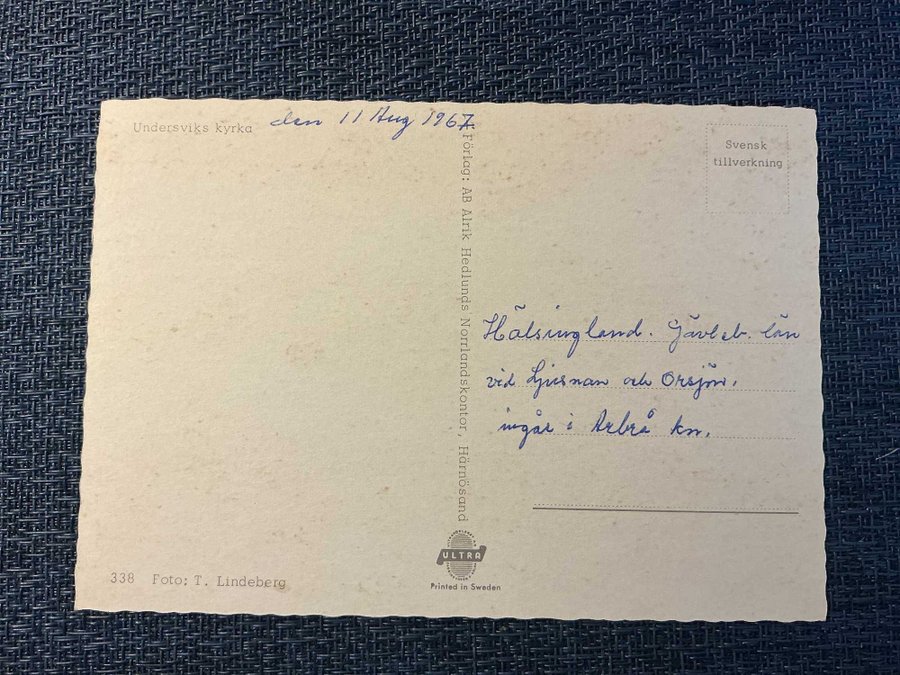 Undersviks kyrka
den 11 Aug 1967
Svensk
tillverkning
Förlag: AB Alrik Hedlunds Norrlandskontor, Härnösand
Hälsingland. Gävleb. län
vid Ljusnan och Orsjön.
ingår i Arbrå kn.
338 Foto: T. Lindeberg
ULTRA
Printed in Sweden